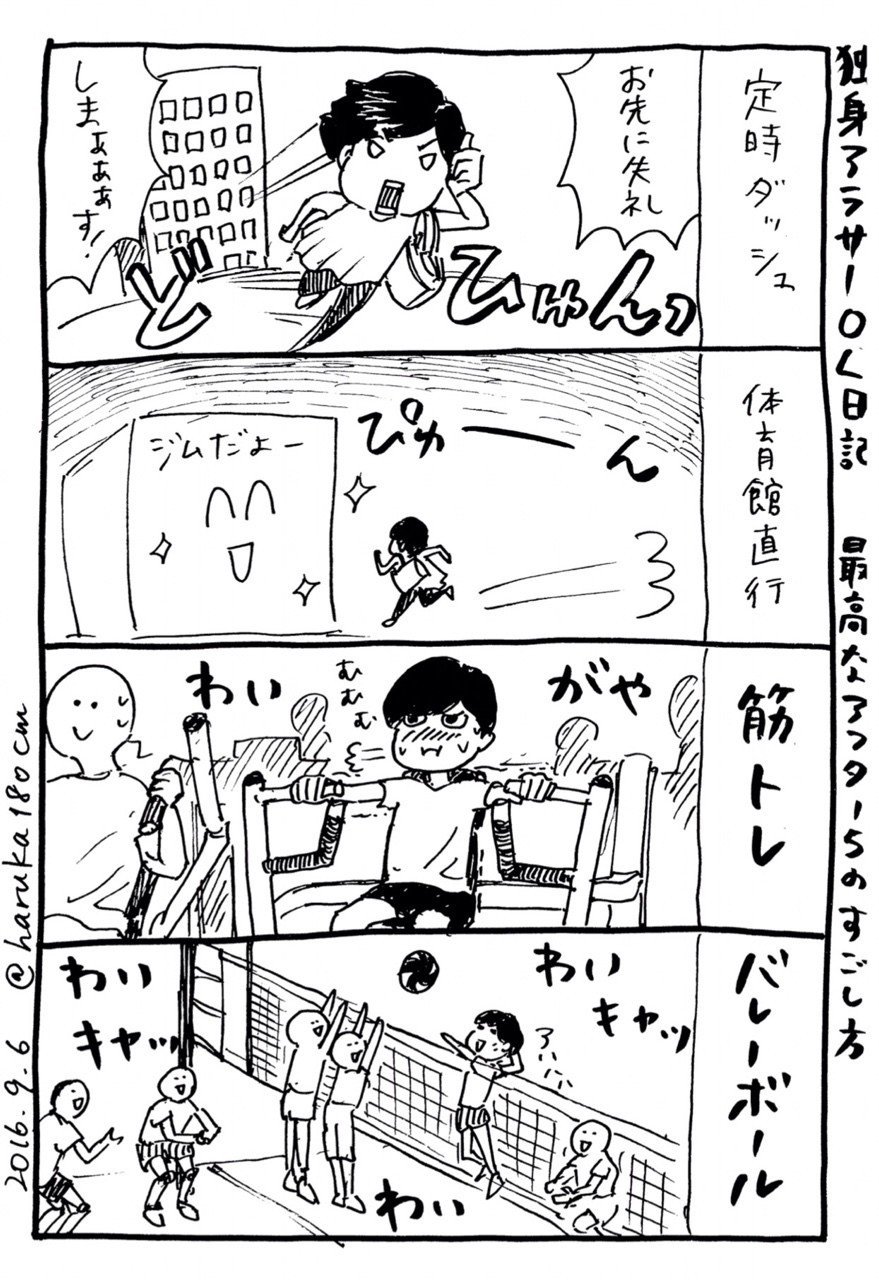 独身アラサーOL日記　最高なアフター5のすごし方
定時ダッシュ
お先に失礼
しまぁぁぁす！
ど
ひゅんっ
体育館直行
ぴゅーーん
ジムだよー
筋トレ
がや
むむむ
わい
バレーボール
わい
キャッ
アハハハ
わい
キャッ
わい
@haruka180cm
2016.9.6